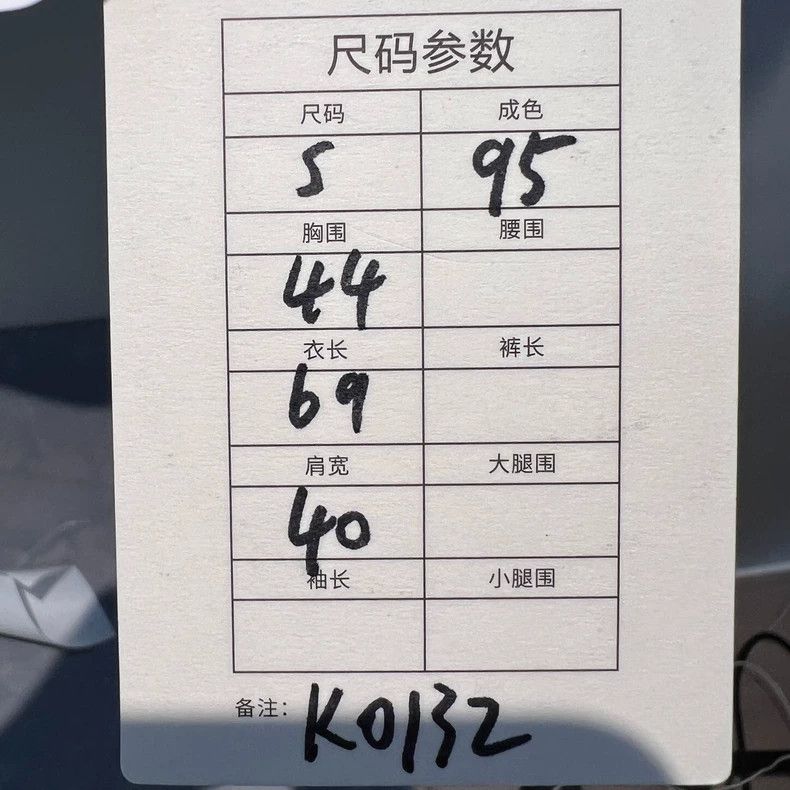 尺码参数
尺码 成色
S 95
胸围 腰围
44
衣长 裤长
69
肩宽 大腿围
40
袖长 小腿围
备注: K0132